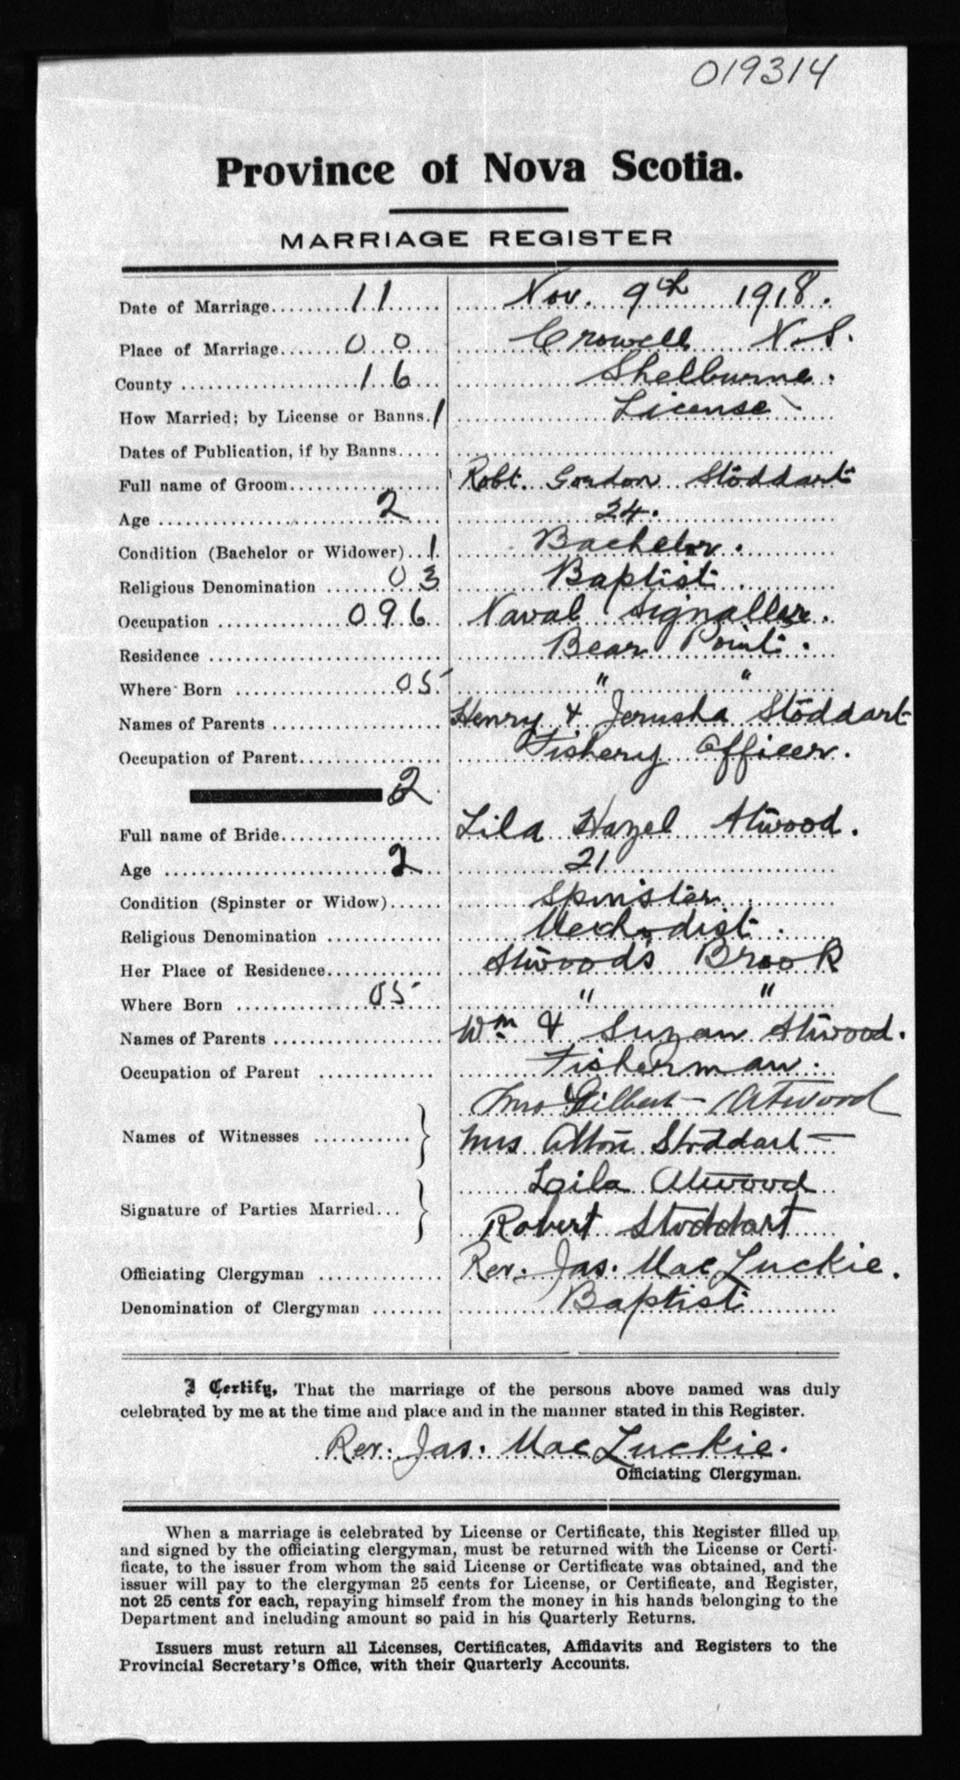 019314
Province of Nova Scotia.
MARRIAGE REGISTER
Date of Marriage.........11...... Nov. 9th 1918.
Place of Marriage......0 0.... Crowell N.S.
County ..................16.... Shelburne.
How Married; by License or Banns.1 License
Dates of Publication, if by Banns.....
Full name of Groom............... Robt. Gordon Stoddart
Age ....................2.... 24.
Condition (Bachelor or Widower)..1. Bachelor.
Religious Denomination ......03 Baptist
Occupation .............096.. Naval Signaller.
Residence ....................... Bear Point.
Where Born ................05 " "
Names of Parents ................. Henry & Jerusha Stoddart
Occupation of Parent.............. Fishery Officer.
2
Full name of Bride................ Lila Hazel Atwood.
Age .......................2.... 21
Condition (Spinster or Widow)...... Spinster
Religious Denomination ............ Methodist.
Her Place of Residence............. Atwood's Brook
Where Born .............05... " "
Names of Parents .................. Wm & Suzan Atwood.
Occupation of Parent ............. Fisherman.
Names of Witnesses ........... } Gilbert Atwood
Mrs Alton Stoddart
Signature of Parties Married... } Lila Atwood
Robert Stoddart
Officiating Clergyman ............. Rev. Jas. MacLuckie.
Denomination of Clergyman ........ Baptist
I Certify, That the marriage of the persons above named was duly
celebrated by me at the time and place and in the manner stated in this Register.
Rev. Jas. MacLuckie.
Officiating Clergyman.
When a marriage is celebrated by License or Certificate, this Register filled up
and signed by the officiating clergyman, must be returned with the License or Certi-
ficate, to the issuer from whom the said License or Certificate was obtained, and the
issuer will pay to the clergyman 25 cents for License, or Certificate, and Register,
not 25 cents for each, repaying himself from the money in his hands belonging to the
Department and including amount so paid in his Quarterly Returns.
Issuers must return all Licenses, Certificates, Affidavits and Registers to the
Provincial Secretary's Office, with their Quarterly Accounts.